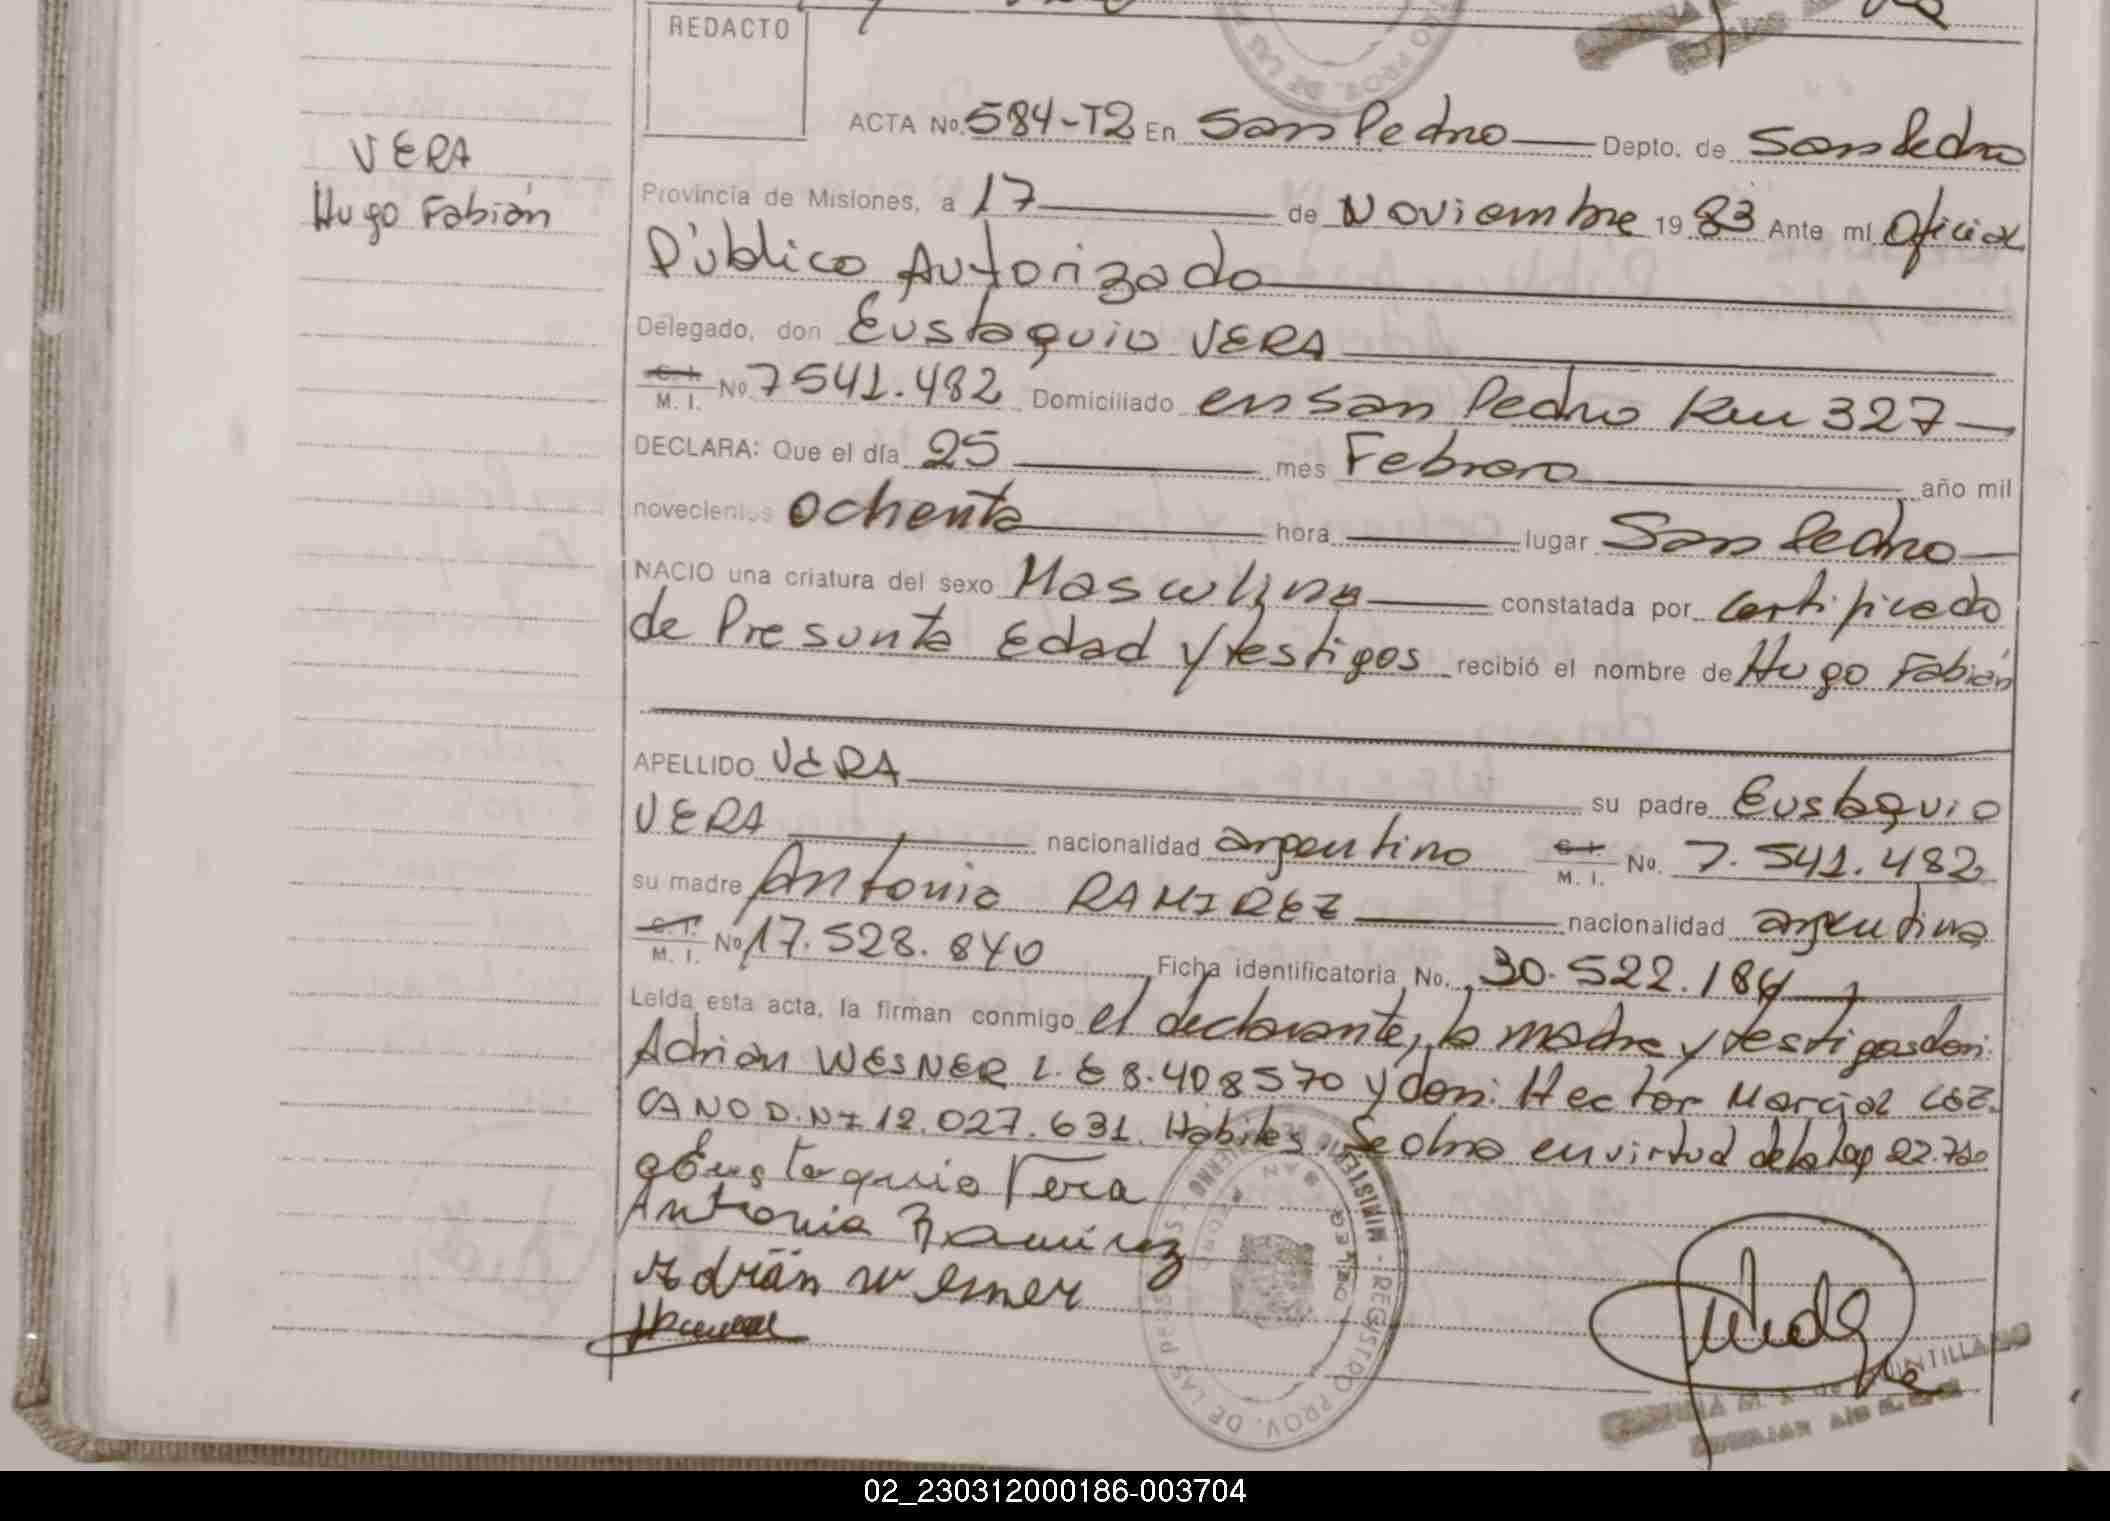 REDACTO
VERA
Hugo Fabián
ACTA No. 584-T2 En San Pedro Depto. de San Pedro
Provincia de Misiones, a 17 de Noviembre 1983 Ante mí Oficial
Público Autorizado
Delegado, don Eustaquio VERA
C. I. M. I. No. 7541.482 Domiciliado en San Pedro Km 327
DECLARA: Que el día 25 mes Febrero año mil
novecientos ochenta hora lugar San Pedro
NACIO una criatura del sexo Masculino constatada por Certificado
de Presunta Edad y testigos recibió el nombre de Hugo Fabián
APELLIDO VERA su padre Eustaquio
VERA nacionalidad argentino C. I. M. I. No. 7.541.482
su madre Antonia RAMIREZ nacionalidad argentina
C. I. M. I. No 17.528.840 Ficha identificatoria No. 30.522.184
Leída esta acta, la firman conmigo el declarante, la madre y testigos don:
Adrián WESNER L.E 8.408570 y don: Hector Marcial LEZ
CANO D.N.I 12.027.631. Hábiles. Se obra en virtud de la Ley
Eustaquio Vera
Antonia Ramírez
Adrián Wesner
MINISTERIO DE GOBIERNO - REGISTRO PROV. DE LAS PERSONAS
SAN PEDRO
QUINTILLANO
02_230312000186-003704